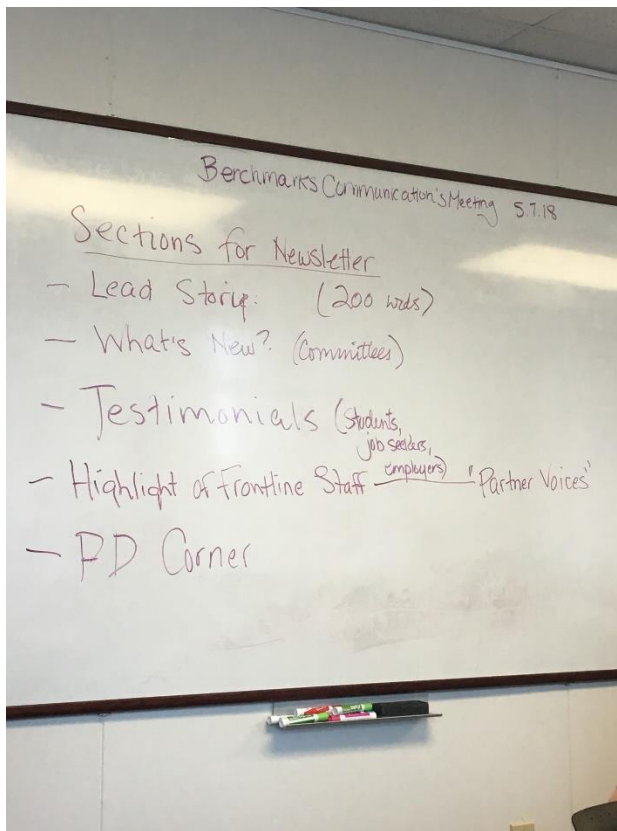 Benchmarks Communication's Meeting 5.7.18
Sections for Newsletter
- Lead Story: (200 wrds)
- What's New? (Committees)
- Testimonials (Students,
job seekers,
employers)
- Highlight of Frontline Staff — "Partner Voices"
- PD Corner